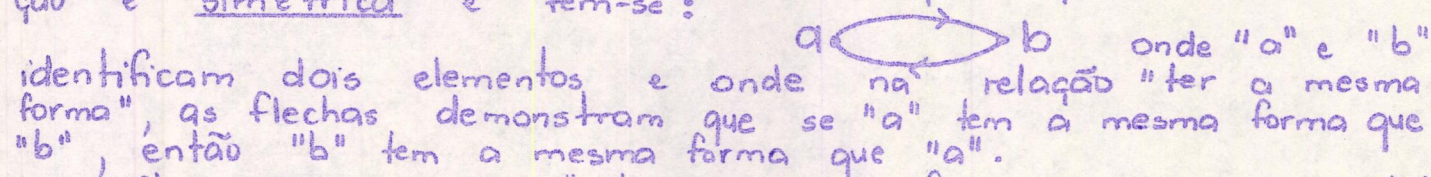 ção é simétrica e tem-se:
a b onde "a" e "b"
identificam dois elementos e onde na relação "ter a mesma
forma", as flechas demonstram que se "a" tem a mesma forma que
"b", então "b" tem a mesma forma que "a".